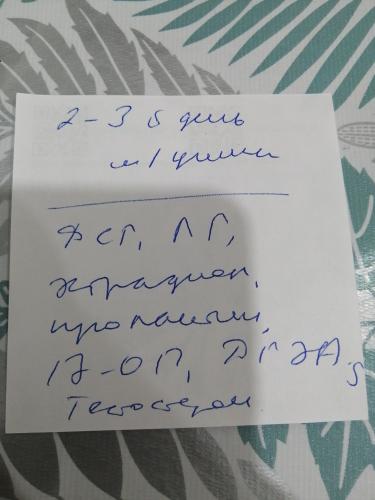 2-3 б день
м/цикла
ФСГ, ЛГ,
эстрадиол,
пролактин,
17-ОП, ДГЭА-S
Тестостерон